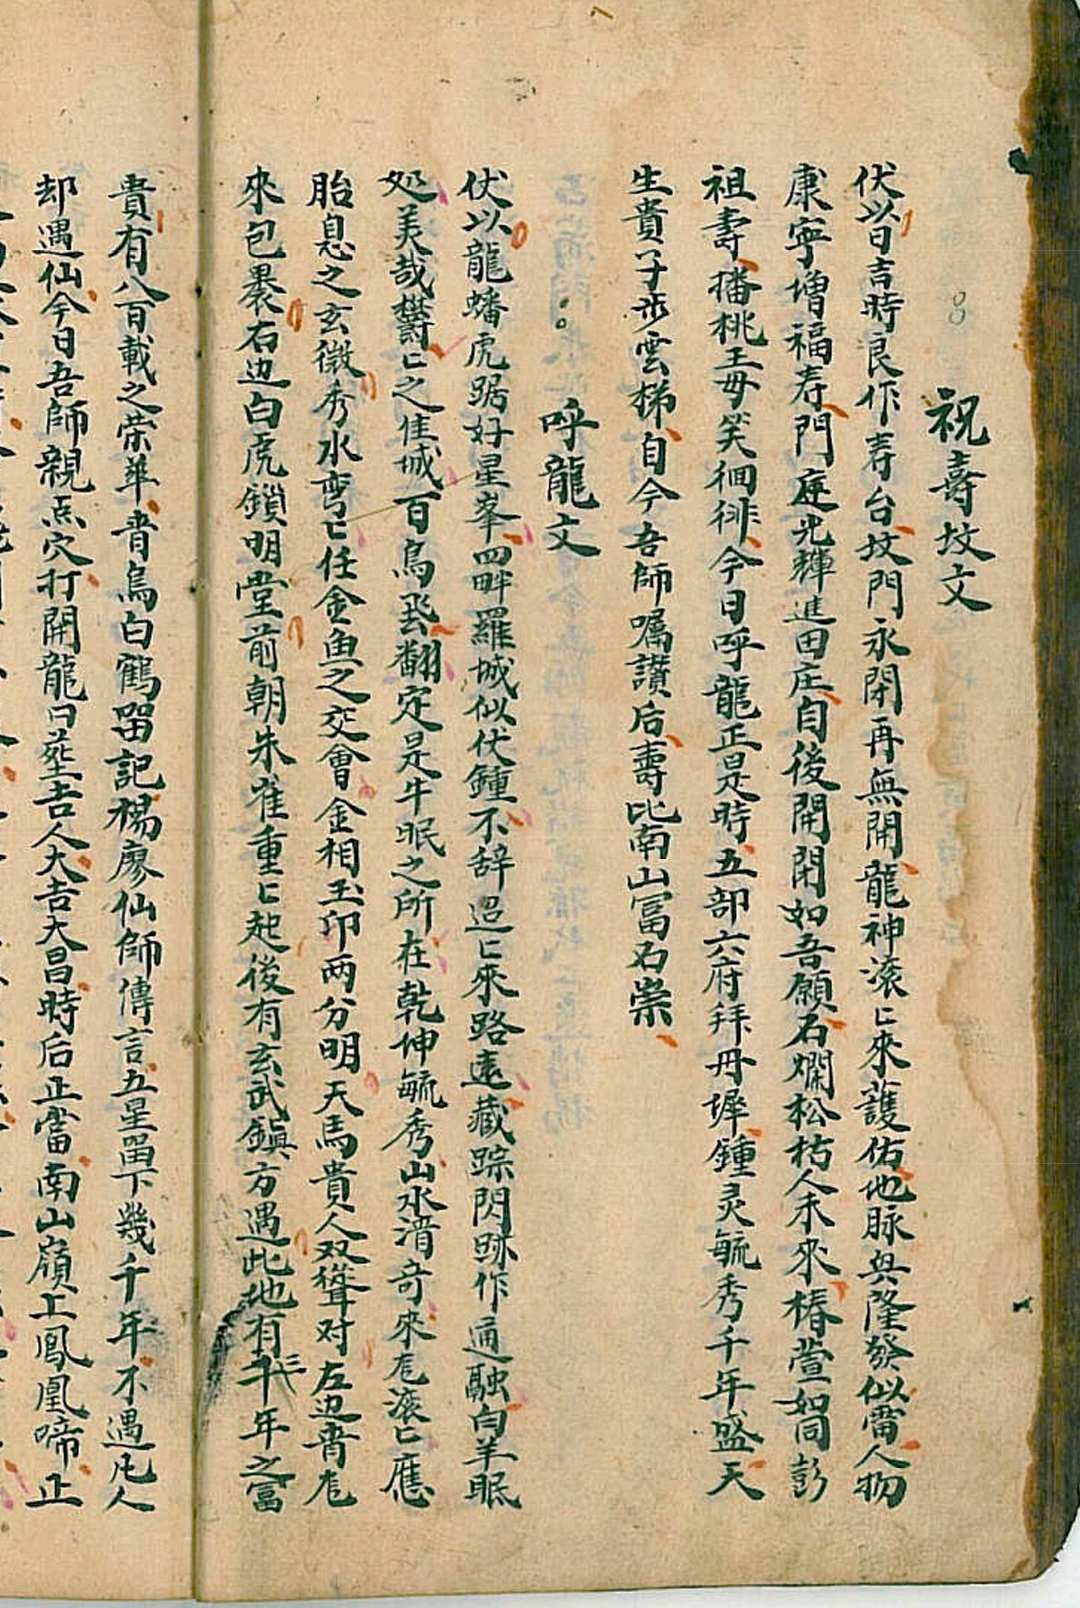 祝壽坟文
伏以日吉時良作寿台坟門永閉再無開龍神滚〻來護佑地脉兴隆發似雷人物
康寧增福寿門庭光輝進田庄自後開閉如吾願石爛松枯人未來椿萱如同彭
祖壽播桃王母笑徊徘今日呼龍正是時五部六府拜丹墀鍾灵毓秀千年盛天
生貴子步雲梯自今吾師嘱讃后壽比南山富石崇
呼龍文
伏以龍蟠虎踞好星峯四畔羅城似伏鍾不辞迢〻來路遠藏踪閃跡作通融白羊眠
処美哉欝〻之佳城百鳥飛翻定是牛眠之所在乾坤毓秀山水清奇來龙滚〻應
胎息之玄微秀水弯〻任金魚之交會金相玉印两分明天馬貴人双聳对左边青龙
來包裹右边白虎鎖明堂前朝朱雀重〻起後有玄武鎮方遇此地有三千年之富
貴有八百載之荣華青鳥白鶴畱記楊廖仙師傳言五星畱下幾千年不遇凡人
却遇仙今日吾師親点穴打開龍口塟吉人大吉大昌時后正當南山嶺上鳳凰啼止